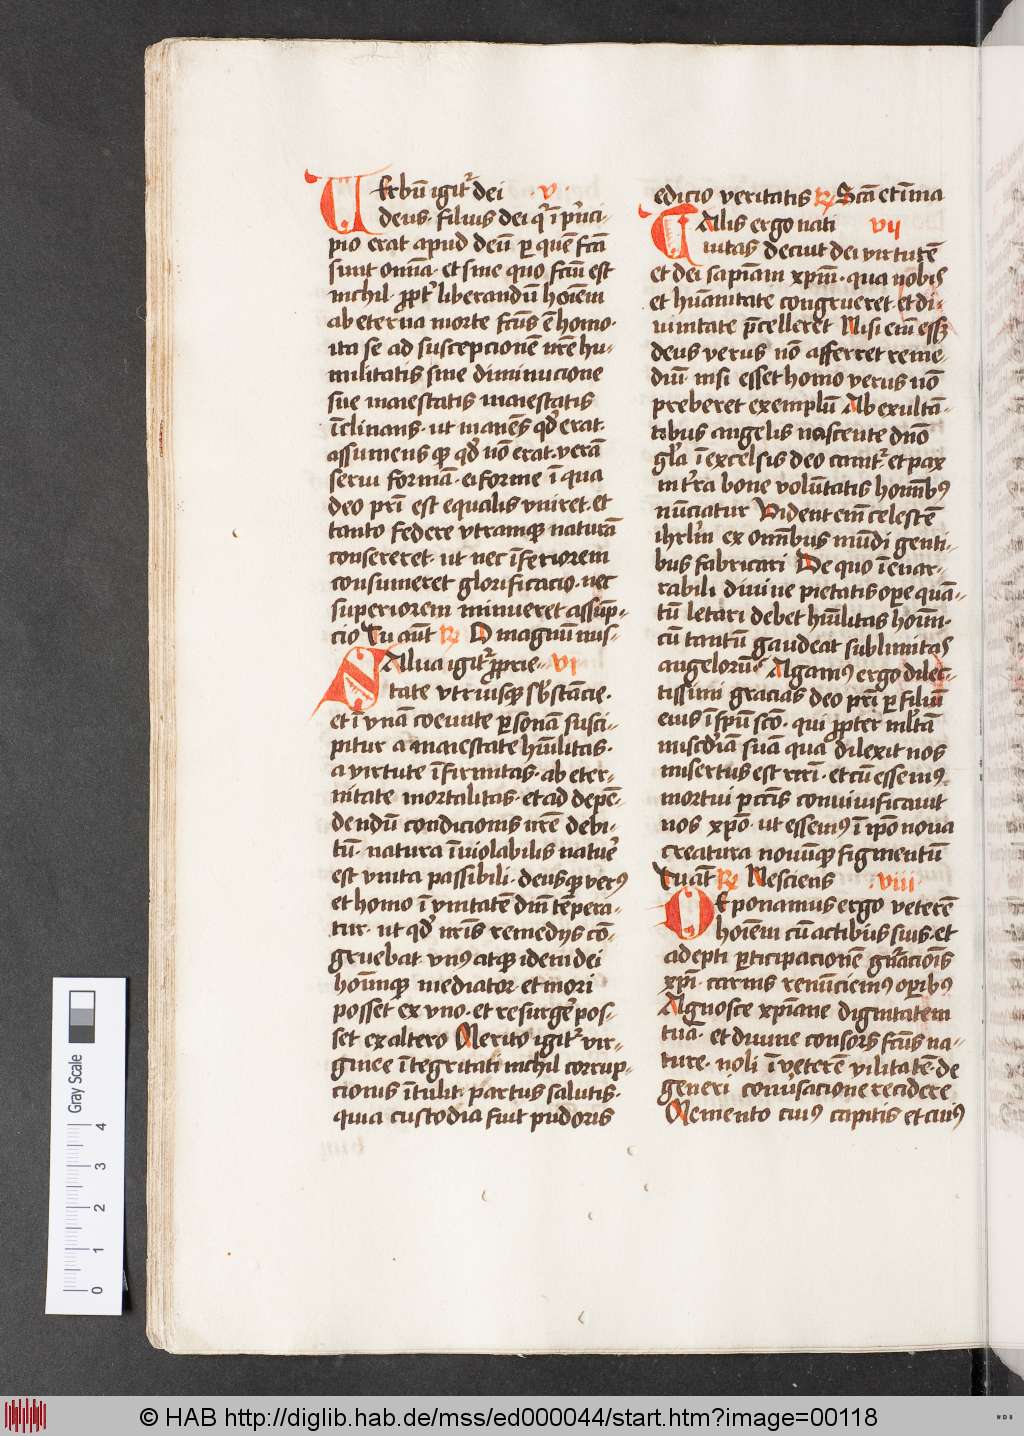 UErbū igit᷑ dei · v ·
deus· filius dei qͥ ī pͥnci-
pio erat apud deū ꝑ quē fcā
sunt om̄ia· et sine quo fcm̄ est
nichil· ꝓpt᷑ liberandū hoīem
ab eterna morte fcūs ē homo·
ita se ad suscepcionē nr̄e hu-
militatis sine diminucione
sue maiestatis maiestatis
īclinans· ut manēs qd̓ erat·
assumens qꝫ qd̓ nō erat· verā
serui formā· ei forme ī qua
deo pr̄i est equalis vniret· et
tanto federe vtramqꝫ naturā
consereret· ut nec īferiorem
consumeret glorificacio· nec
superiorem minueret assūp-
cio Tu aūt ℞ O magnū mis-
SAlua igit᷑ ꝓprie- vi
tate vtriusqꝫ sb̓stācie·
et ī vnā coeunte ꝑsonā susci-
pitur a maiestate hūilitas·
a virtute īfirmitas· ab eter-
nitate mortalitas· et ad depē-
dendū condicionis nr̄e debi-
tū· natura īuiolabilis natur̄e
est vnita passibili· deusqꝫ verꝰ
et homo ī vnitatē dn̄i tēpera-
tur· ut qd̓ nr̄is remedijs cō-
gruebat· vnꝰ atqꝫ idem dei
hoīmqꝫ mediator· et mori
posset ex vno· et resurge᷑ pos-
set ex altero Merito igit᷑ vir-
ginee ītegritati nichil corrup-
cionis ītulit· partus salutis·
quia custodia fuit pudoris
edicio veritatis ℞ Scā et īma
TAlis ergo nati vij
uitas decuit dei virtutē
et dei sapiam xpm̄· qua nobis
et hūanitate congrueret· et di-
uinitate p̄celleret Nisi em̄ esset
deus verus nō afferret reme-
diū· nisi esset homo verus nō
preberet exemplū Ab exultā-
tibus angelis nascente dn̄o
gl̓a ī excelsis deo canit᷑· et pax
in t᷑ra bone volūtatis hoīmbꝰ
nūnciatur Vident em̄ celestē
ihrl̓m ex om̄ibus mūdi genti-
bus fabricari De quo īenar-
rabili diuine pietatis oꝑe quā-
tū letari debet hūilitas hoīm·
cū tantū gaudeat sublimitas
angelorū Agamꝰ ergo dilec-
tissimi gracias deo pr̄i ꝑ filiū
eius ī spū sco̅· qui ꝓpter ml̓tā
misc̓diā suā qua dilexit nos
misertus est nr̄i· et cū essemꝰ
mortui pcc̄is conuiuificauit
nos xpo̅· ut essemꝰ ī ip̄o noua
creatura nouūqꝫ figmentū
Tu aūt ℞ Nesciens · viii ·
DEponamus ergo veterē
hoīem cū actibus suis· et
adepti ꝑticipacionē gn̄acōis
xpi̅· carnis renūciemꝰ oꝑibꝰ
Agnosce xpiane dignitatem
tuā· et diuine consors fcūs na-
ture· noli ī veterē vilitatē de
generi conūsacione recidere
Memento cuiꝰ capitis et cuiꝰ
Gray Scale
0 1 2 3 4
© HAB http://diglib.hab.de/mss/ed000044/start.htm?image=00118